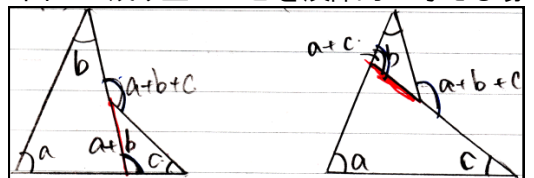 b
a+b+c
a
a+b
c
a+c
b
a+b+c
a
c